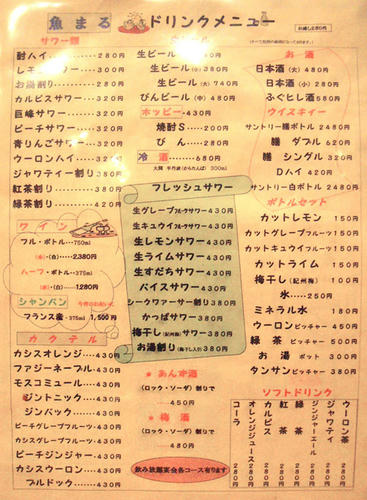 魚まる ドリンクメニュー
サワー類
酎ハイ 280円
レモンサワー 300円
お湯割り 280円
カルピスサワー 320円
巨峰サワー 320円
ピーチサワー 320円
青りんごサワー 320円
ウーロンハイ 320円
ジャワティー割り 380円
紅茶割り 380円
緑茶割り 420円
ワイン
フル・ボトル…750ml
(赤)・(白)…2380円
ハーフ・ボトル…375ml
(赤)・(白)…1280円
シャンパン
フランス産・375ml 1,500円
カクテル
カシスオレンジ…430円
ファジーネーブル…430円
モスコミュール…430円
ジントニック…430円
ジンバック…430円
ピーチグレープフルーツ…430円
カシスグレープフルーツ…430円
ピーチジンジャー…430円
カシスウーロン…430円
ブルドック…430円
生ビール 580円
生ビール(小) 380円
生ビール(大) 740円
びんビール(中) 480円
ホッピー 430円
焼酎S 200円
びん 280円
冷酒 680円
300ml
フレッシュサワー
生グレープフルーツサワー 430円
生キュウイフルーツサワー 430円
生レモンサワー 430円
生ライムサワー 430円
生すだちサワー 430円
バイスサワー 430円
シークヮーサー割り 380円
かつぱサワー 380円
梅干し(紀州梅)サワー 380円
お湯割り(梅干し入り) 380円
★ あんず酒
(ロック・ソーダ) 割りで
450円
★ 梅酒
(ロック・ソーダ) 割りで
480円
飲み放題宴会各コース有ります
お酒
日本酒(大) 480円
日本酒(小) 280円
ふぐヒレ酒 580円
ウイスキイー
サントリー膳ボトル 2480円
膳 ダブル 620円
膳 シングル 320円
Dハイ 420円
サントリー白ボトル 2480円
ボトルセット
カットレモン 150円
カットグレープフルーツ 150円
カットキュウイフルーツ 150円
カットライム 150円
梅干し(紀州梅) 100円
氷 250円
ミネラル水 180円
ウーロンピッチャー 450円
緑茶ピッチャー 500円
お湯ポット 300円
タンサン 380円
ソフトドリンク
ウーロン茶 280円
ジャワティ 280円
ジンジャーエール 280円
緑茶 280円
紅茶 280円
カルピス 280円
オレンジジュース 280円
コーラ 280円